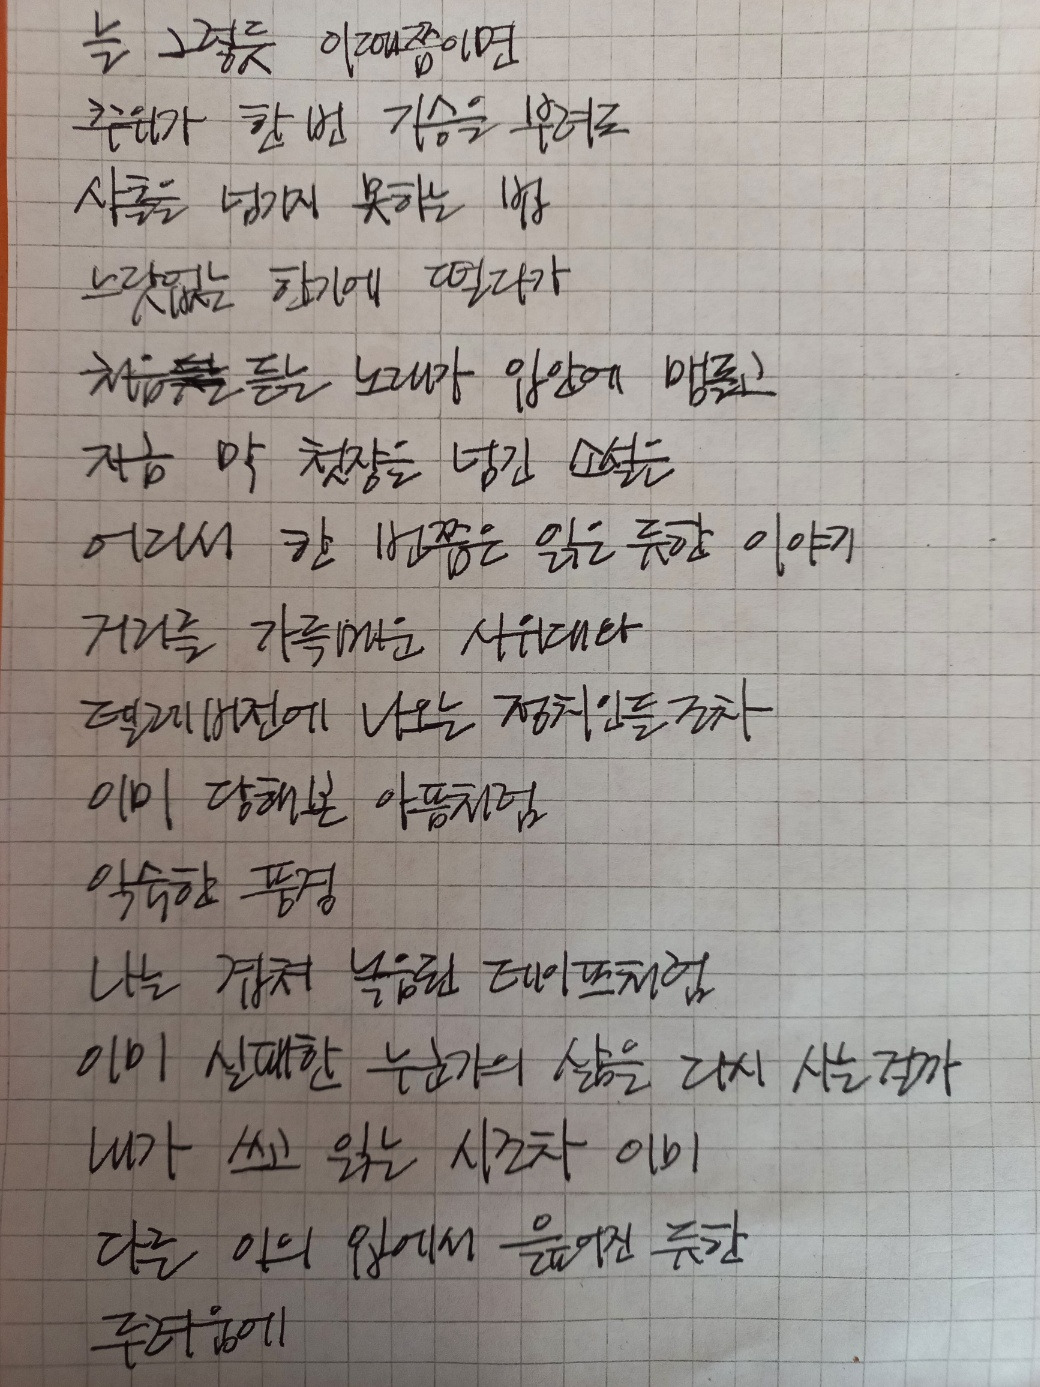 늘 그렇듯 이때쯤이면
추위가 한 번 기승을 부려도
사흘을 넘기지 못하는 법
느닷없는 한기에 떨다가
처음 듣는 노래가 입안에 맴돌고
지금 막 첫장을 넘긴 소설은
어디서 한 번쯤은 읽은 듯한 이야기
거리를 가득메운 시위대와
텔레비전에 나오는 정치인들조차
이미 당해본 아픔처럼
익숙한 풍경
나는 겹쳐 녹음된 테이프처럼
이미 실패한 누군가의 삶을 다시 사는걸까
내가 쓰고 읽는 시조차 이미
다른 이의 입에서 읊어진 듯한
두려움에